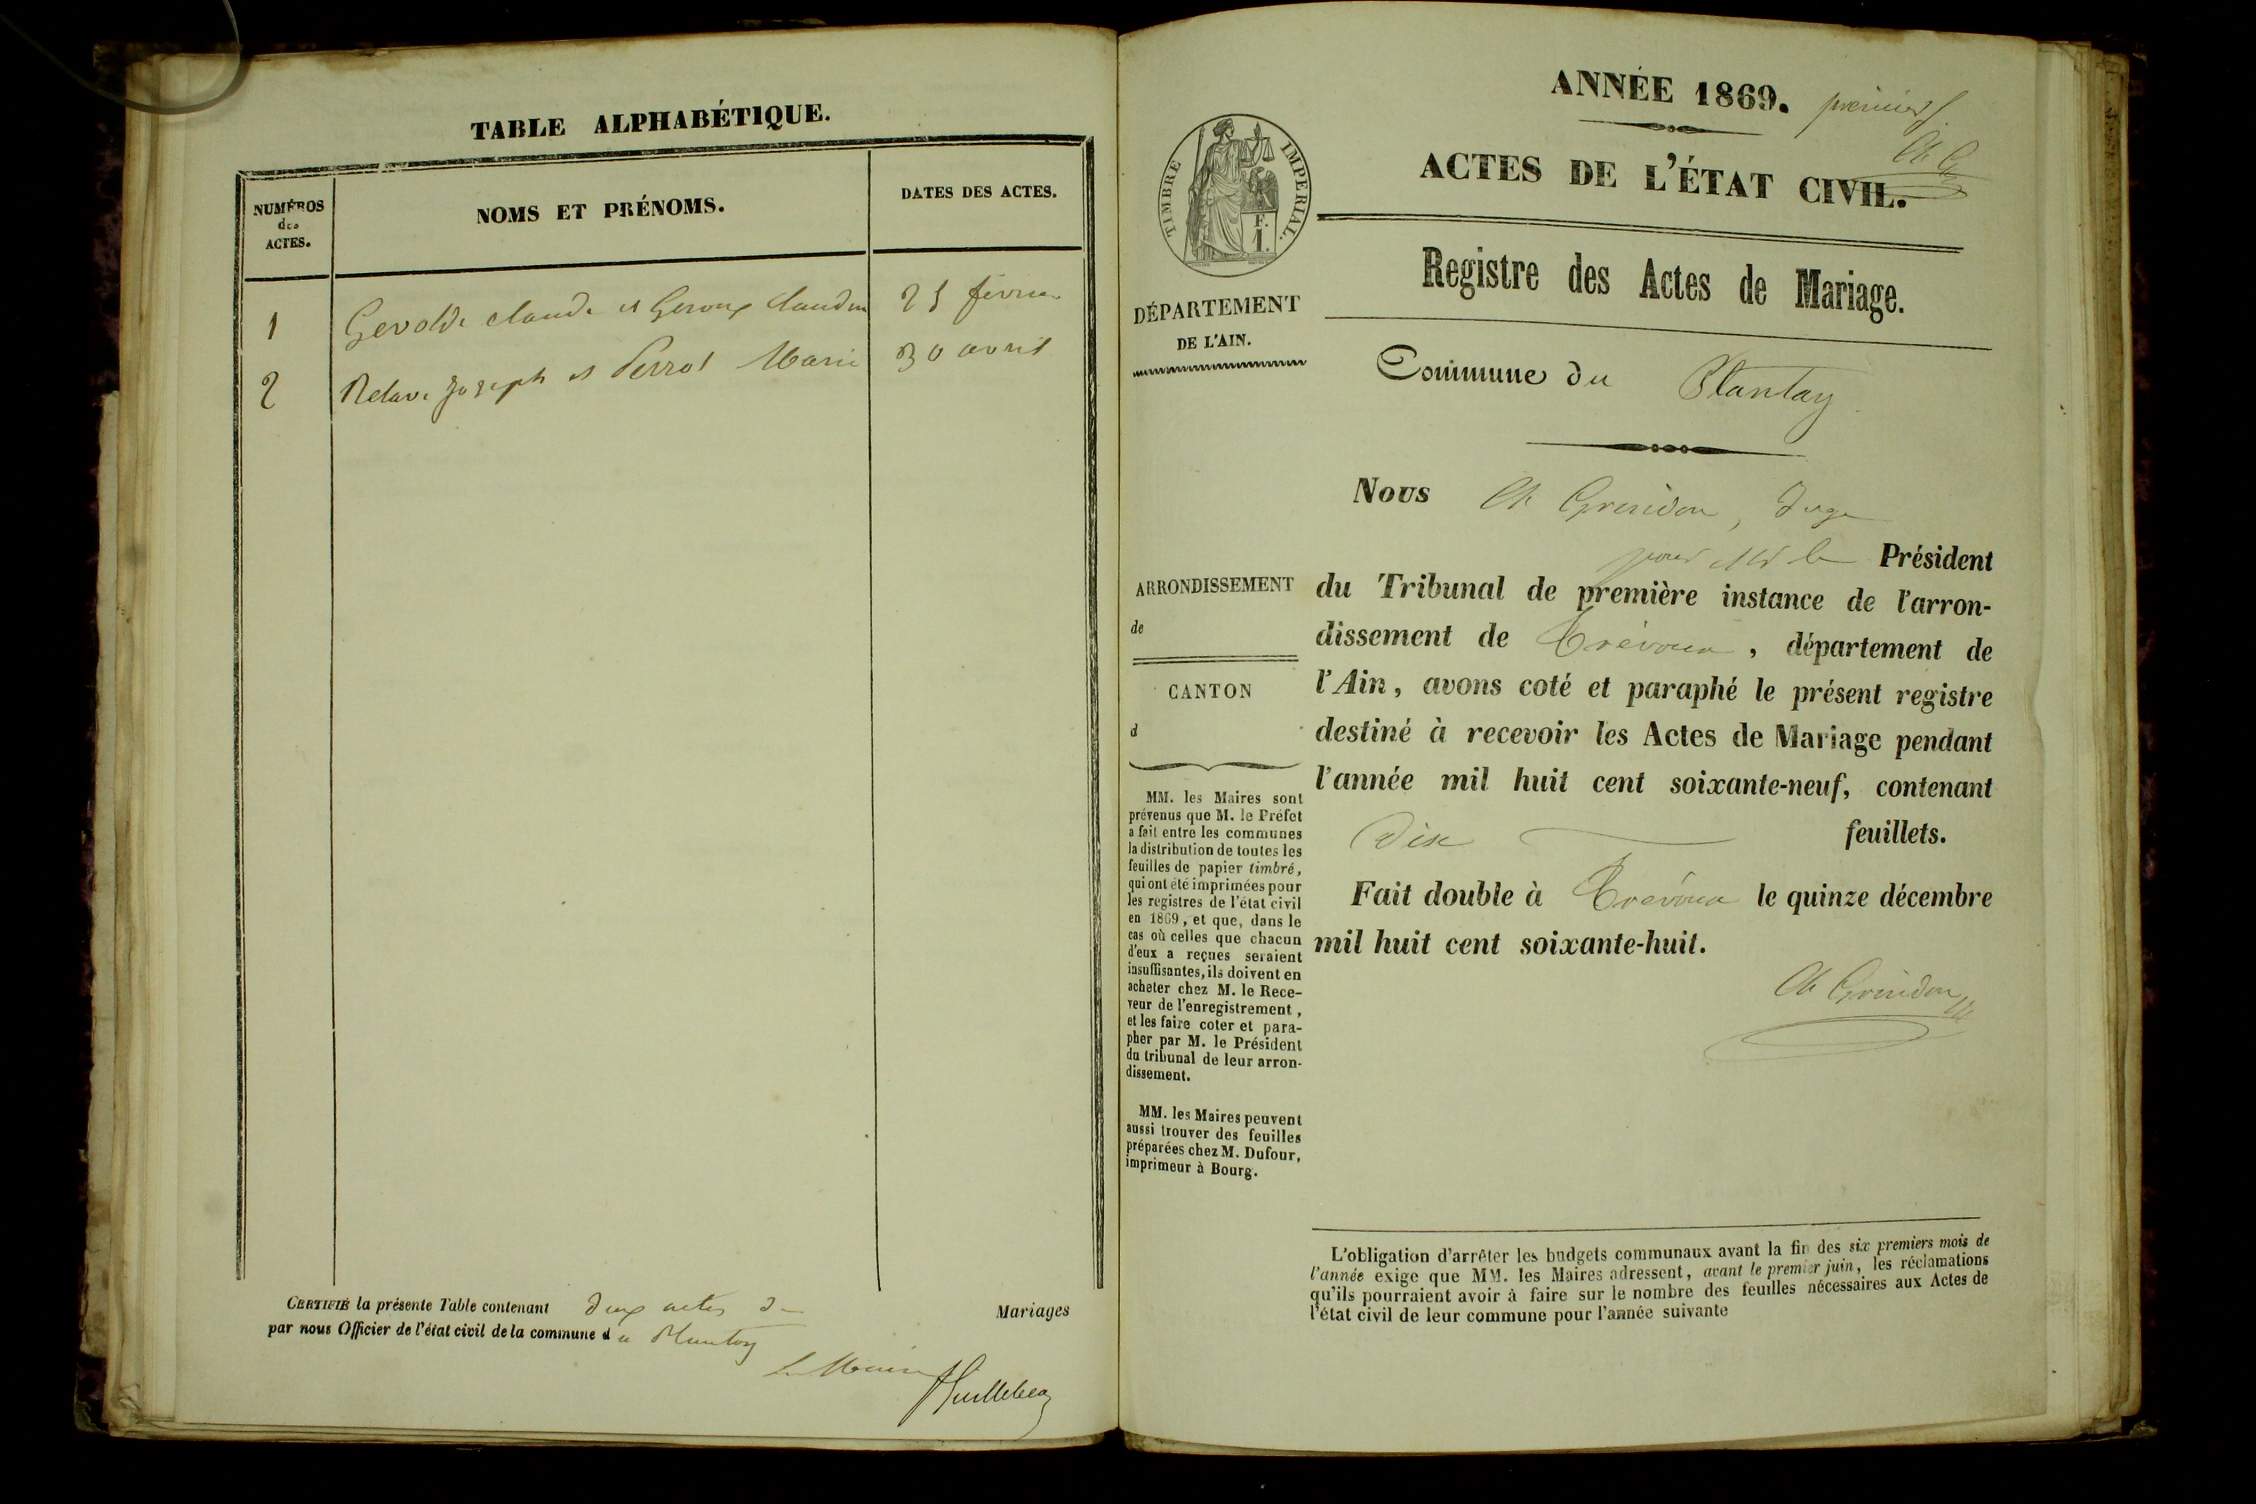 TABLE ALPHABÉTIQUE.
NUMÉROS
des
ACTES.
NOMS ET PRÉNOMS.
DATES DES ACTES.
1 claude et Geroux 25 février
2 joseph et Perrot Marie 30 avril
CERTIFIÉ la présente Table contenant deux actes de Mariages
par nous Officier de l'état civil de la commune du Plantay
Le Maire
ANNÉE 1869. premier f.
Ch G
ACTES DE L'ÉTAT CIVIL.
TIMBRE IMPERIAL.
F.
1.
Registre des Actes de Mariage.
DÉPARTEMENT
DE L'AIN.
Commune du Plantay
Nous Ch Grindon, Juge
pour Mr le Président
ARRONDISSEMENT
de
CANTON
d
du Tribunal de première instance de l'arron-
dissement de Trévoux, département de
l'Ain, avons coté et paraphé le présent registre
destiné à recevoir les Actes de Mariage pendant
l'année mil huit cent soixante-neuf, contenant
dix feuillets.
Fait double à Trévoux le quinze décembre
mil huit cent soixante-huit.
Ch Grindon
MM. les Maires sont
prévenus que M. le Préfet
a fait entre les communes
la distribution de toutes les
feuilles de papier timbré,
qui ont été imprimées pour
les registres de l'état civil
en 1869, et que, dans le
cas où celles que chacun
d'eux a reçues seraient
insuffisantes, ils doivent en
acheter chez M. le Rece-
veur de l'enregistrement,
et les faire coter et para-
pher par M. le Président
du tribunal de leur arron-
dissement.
MM. les Maires peuvent
aussi trouver des feuilles
préparées chez M. Dufour,
imprimeur à Bourg.
L'obligation d'arrêter les budgets communaux avant la fin des six premiers mois de
l'année exige que MM. les Maires adressent, avant le premier juin, les réclamations
qu'ils pourraient avoir à faire sur le nombre des feuilles nécessaires aux Actes de
l'état civil de leur commune pour l'année suivante